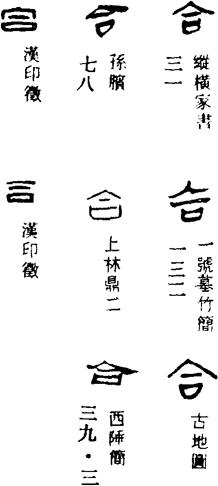 合
縱橫家書
三一
合
一號墓竹簡
一三二
合
古地圖
合
孫臏
七八
合
上林鼎二
合
西陲簡
三九·三
漢印徵
漢印徵